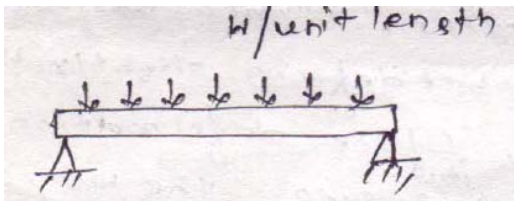 W/unit length